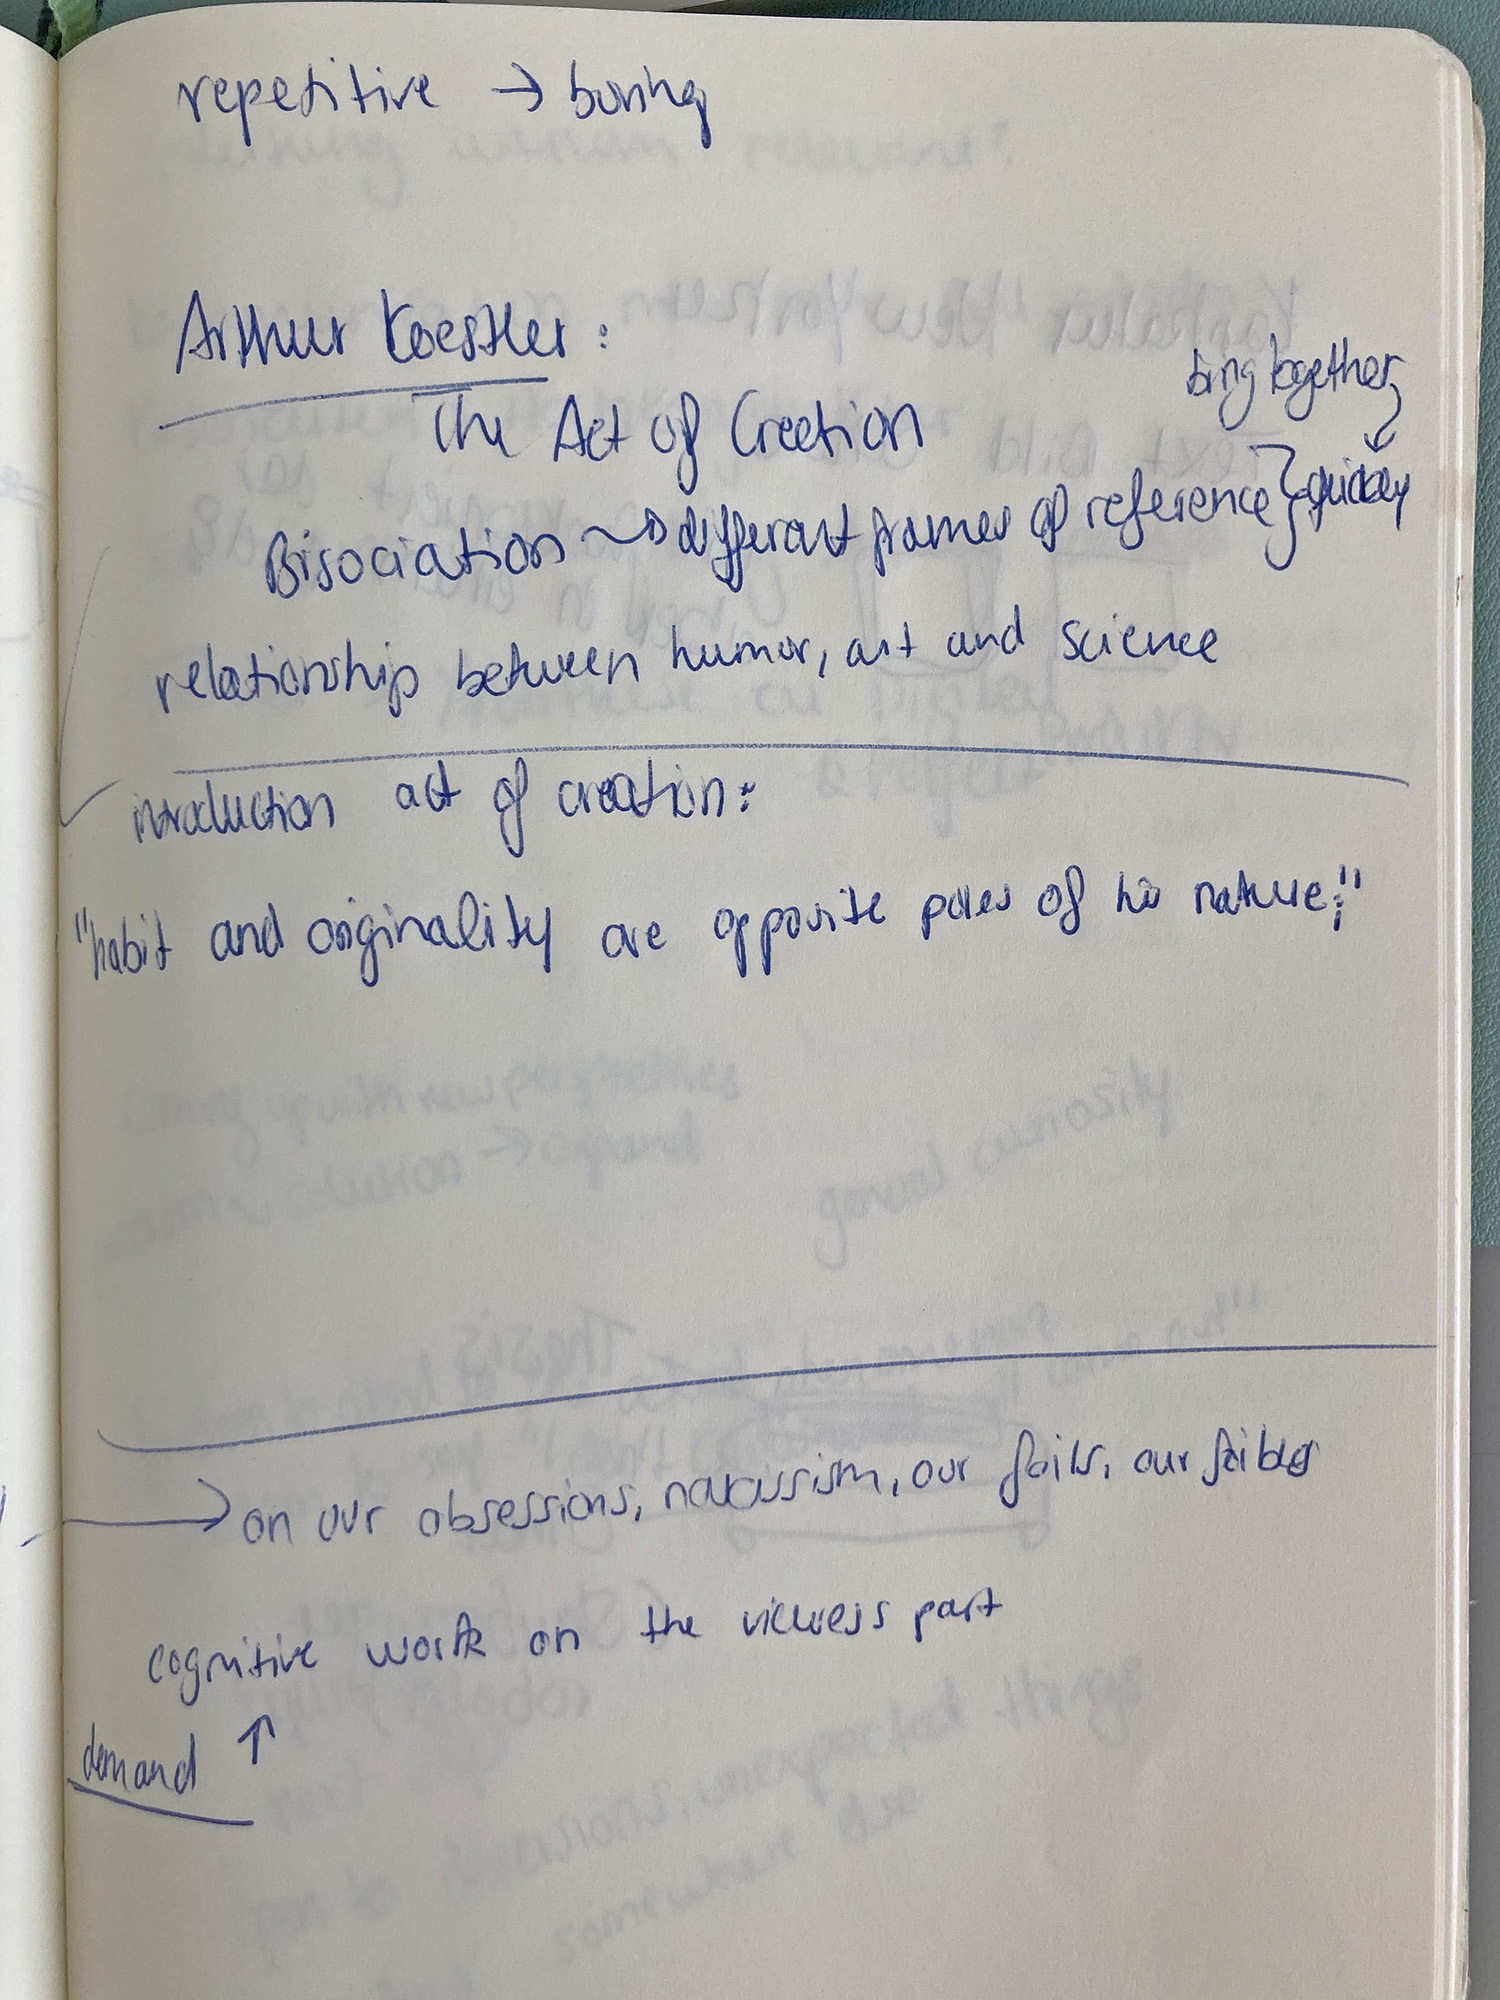 repetitive → boring
Arthur Koestler:
The Act of Creation
bring together
Bisociation → different frames of reference } quickly
relationship between humor, art and science
introduction act of creation:
"habit and originality are opposite poles of his nature;"
→ on our obsessions, narcissism, our foibs, our foibles
cognitive work on the viewers part
demand ↑